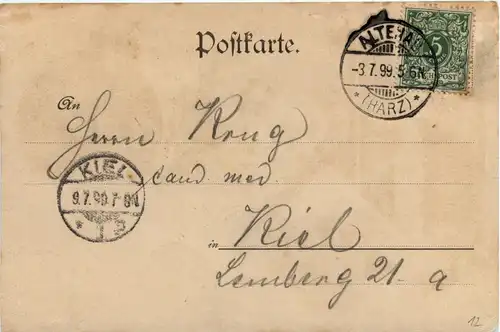 Postkarte.
ALTENAU
-3.7.99. 5-6N
* (HARZ) *
5
POST
An
Herrn Krug
cand med.
KIEL
9.7.99. 7-8N
* 1 *
in Kiel
Lornberg 21. a
12